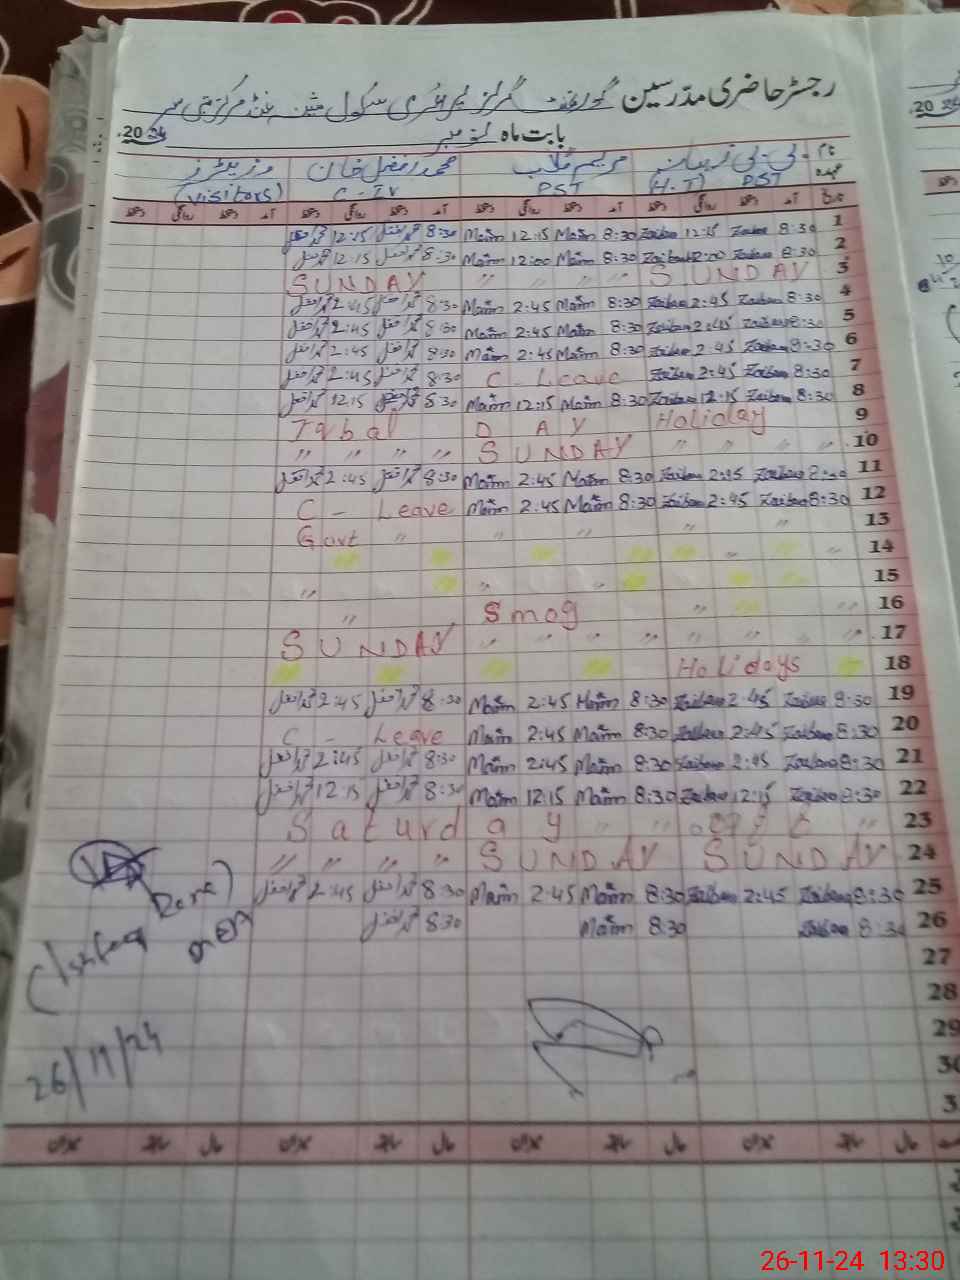 رجسٹر حاضری مدرسین گورنمنٹ گرلز پرائمری سکول
بابت ماہ نومبر 2024
نام بی بی زیبان مریم گلاب محمد افضل خان وزیٹرز
عہدہ PST (H.T) PST C-IV (visitors)
تاریخ آمد دستخط روانگی دستخط آمد دستخط روانگی دستخط آمد دستخط روانگی دستخط آمد دستخط روانگی دستخط
1 8:30 Zaiban 12:15 Zaiban 8:30 Maim 12:15 Maim 8:30 محمد افضل 12:15 محمد افضل
2 8:30 Zaiban 12:00 Zaiban 8:30 Maim 12:00 Maim 8:30 محمد افضل 12:15 محمد افضل
3 SUNDAY " " " " SUNDAY
4 8:30 Zaiban 2:45 Zaiban 8:30 Maim 2:45 Maim 8:30 محمد افضل 2:45 محمد افضل
5 8:30 Zaiban 2:45 Zaiban 8:30 Maim 2:45 Maim 8:30 محمد افضل 2:45 محمد افضل
6 8:30 Zaiban 2:45 Zaiban 8:30 Maim 2:45 Maim 8:30 محمد افضل 2:45 محمد افضل
7 8:30 Zaiban 2:45 Zaiban C-Leave 8:30 محمد افضل 2:45 محمد افضل
8 8:30 Zaiban 12:15 Zaiban 8:30 Maim 12:15 Maim 8:30 محمد افضل 12:15 محمد افضل
9 Iqbal DAY Holiday
10 " " " " SUNDAY " " " "
11 8:30 Zaiban 2:45 Zaiban 8:30 Maim 2:45 Maim 8:30 محمد افضل 2:45 محمد افضل
12 8:30 Zaiban 2:45 Zaiban 8:30 Maim 2:45 Maim C - Leave
13 Govt " " " " "
14 " "
15 " " "
16 " Smog " "
17 SUNDAY " " " " " " " "
18 Holidays
19 8:30 Zaiban 2:45 Zaiban 8:30 Maim 2:45 Maim 8:30 محمد افضل 2:45 محمد افضل
20 8:30 Zaiban 2:45 Zaiban 8:30 Maim 2:45 Maim C - Leave
21 8:30 Zaiban 2:45 Zaiban 8:30 Maim 2:45 Maim 8:30 محمد افضل 2:45 محمد افضل
22 8:30 Zaiban 12:15 Zaiban 8:30 Maim 12:15 Maim 8:30 محمد افضل 12:15 محمد افضل
23 Saturday " " off "
24 " " " " SUNDAY SUNDAY
25 8:30 Zaiban 2:45 Zaiban 8:30 Maim 2:45 Maim 8:30 محمد افضل 2:45 محمد افضل
26 8:30 Zaiban 8:30 Maim 8:30 محمد افضل
27
28
29
30
3
26/11/24
26-11-24 13:30